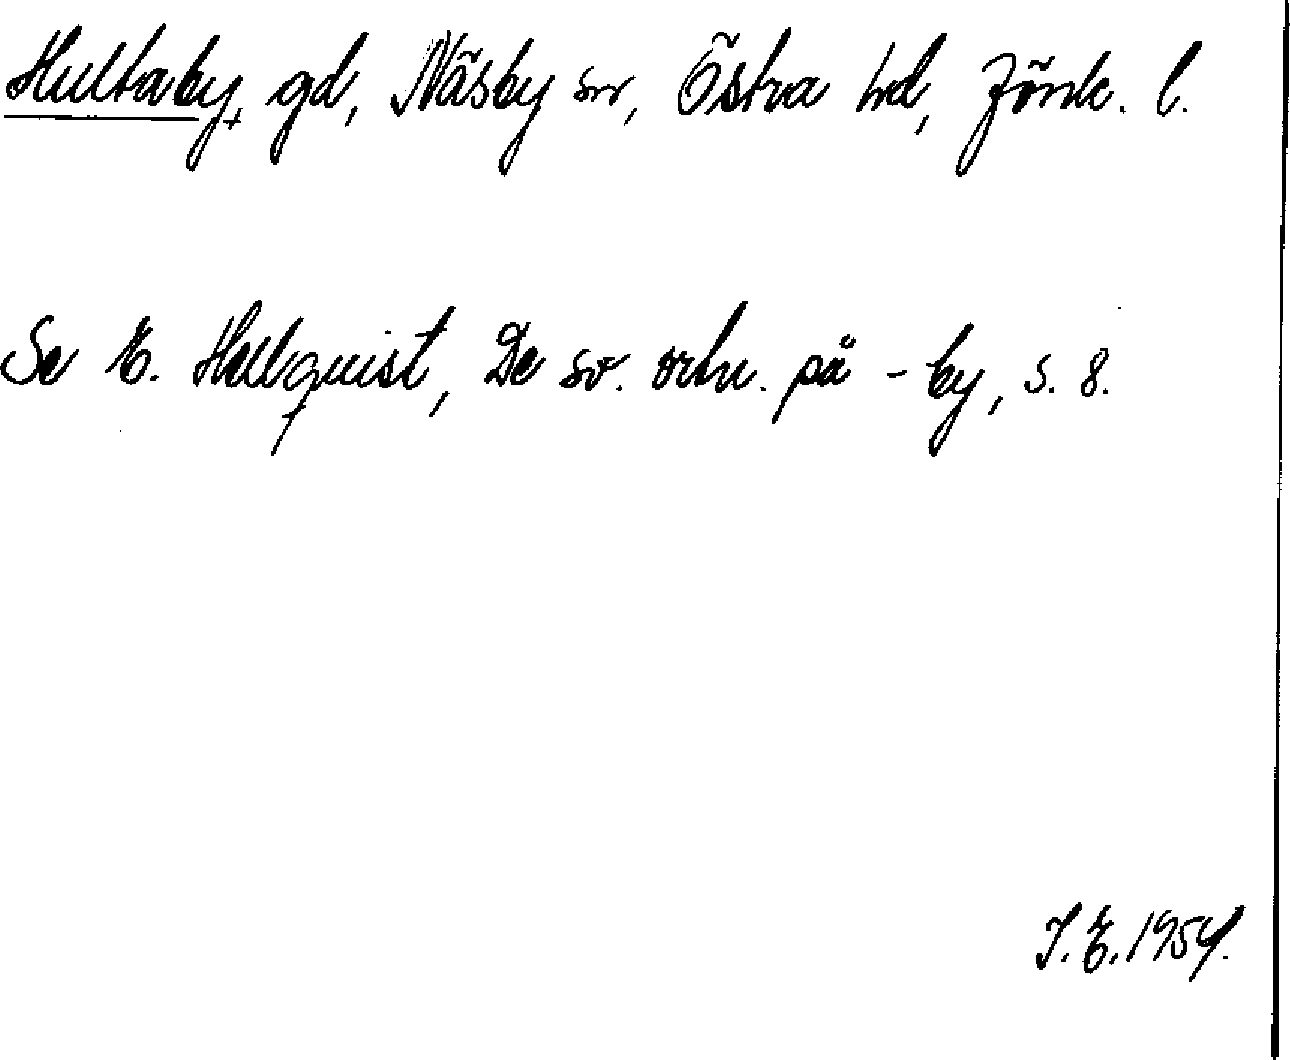 Hultaby, gd, Näsby sn, Östra hd, Jönk. l.
Se E. Hellquist, De sv. ortn. på -by, s. 8.
I. E. 1954.